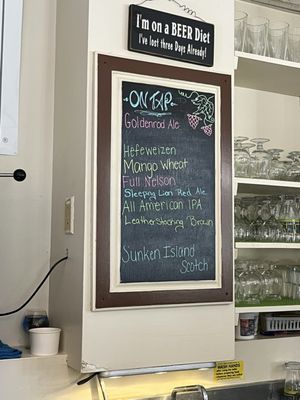 I'm on a BEER Diet
I've lost three Days Already!
ON TAP
Goldenrod Ale
Hefeweizen
Mango Wheat
Full Nelson
Sleeping Lion Red Ale
All American IPA
Leatherstocking Brown
Sunken Island
Scotch
WASH HANDS